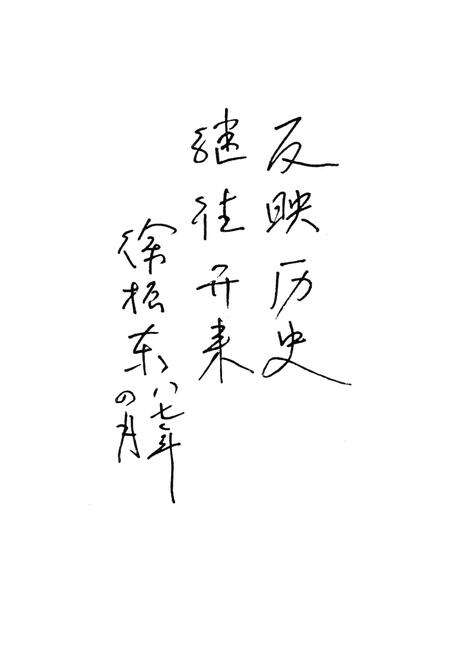 反映历史
继往开来
徐振东
八七年
四月